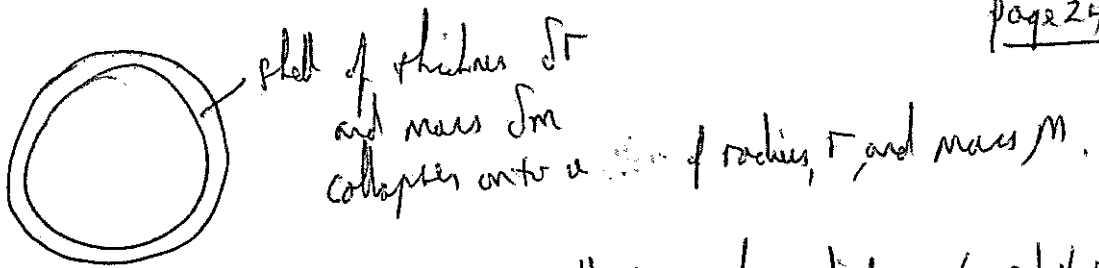 page 25
shell of thickness δr
and mass δm
collapses onto a of radius, r, and mass M.